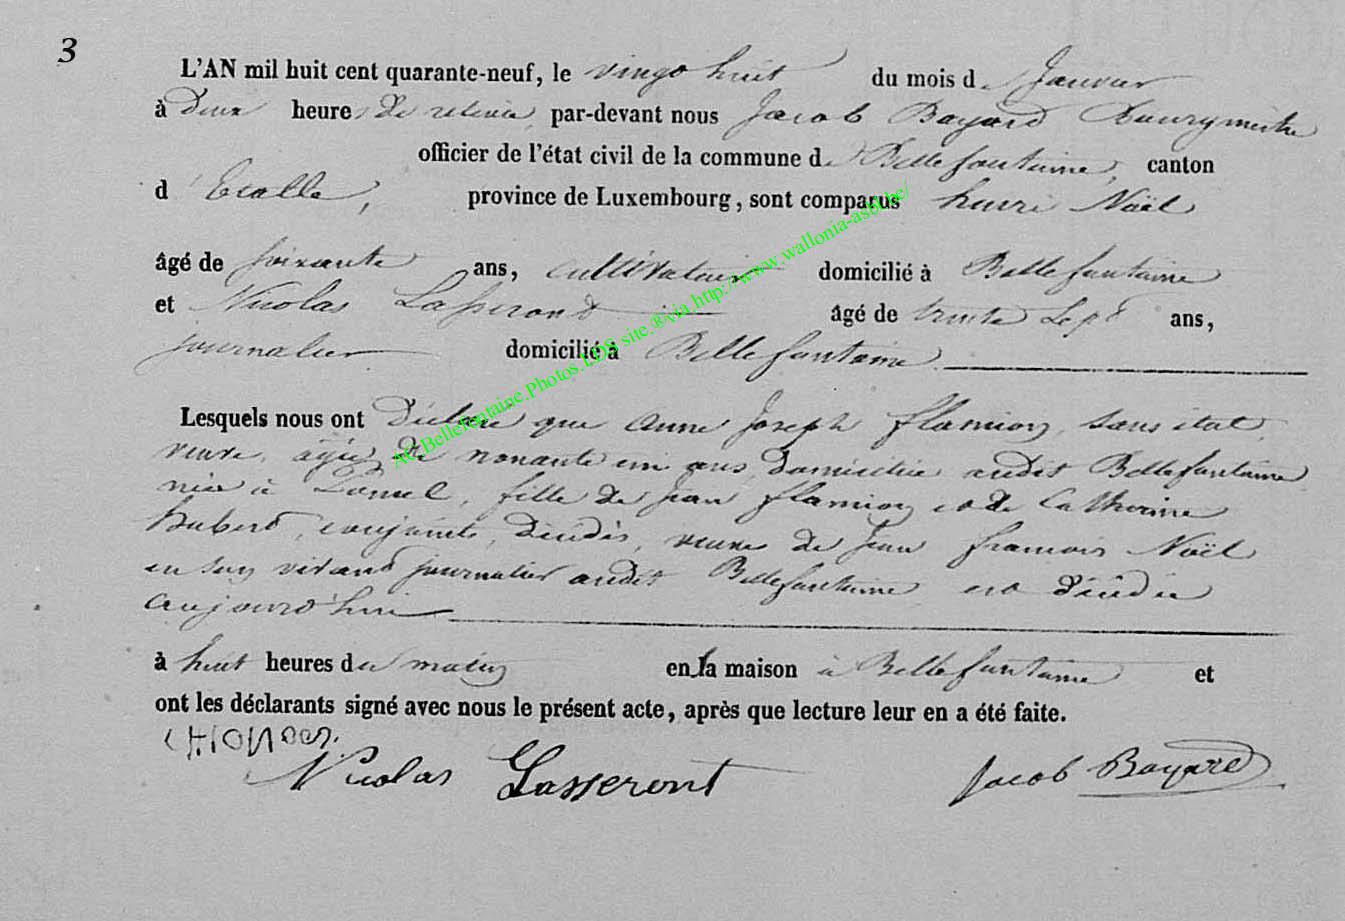 3
L'AN mil huit cent quarante-neuf, le vingt huit du mois de Janvier
à Deux heures de relevée, par-devant nous Jacob Bayard Bourgmestre
officier de l'état civil de la commune de Bellefontaine, canton
d'Etalle, province de Luxembourg, sont comparus henri Noël
âgé de soixante ans, cultivateur domicilié à Bellefontaine
et Nicolas Lasseront âgé de trente sept ans,
journalier domicilié à Bellefontaine
Lesquels nous ont Déclaré que anne Joseph flamion, sans état,
veuve, agée de nonante un ans, domiciliée audit Bellefontaine
née à fille de Jean flamion et de Catherine
hubert, conjoints, décédés, veuve de Jean francois Noël
en son vivant journalier audit Bellefontaine est décédée
aujourd'hui
à huit heures du matin en sa maison à Bellefontaine et
ont les déclarants signé avec nous le présent acte, après que lecture leur en a été faite.
Nicolas Lasseront Jacob Bayard
AC.Bellefontaine.Photos.LDS site.®via.http://www.wallonia-asbl.be/